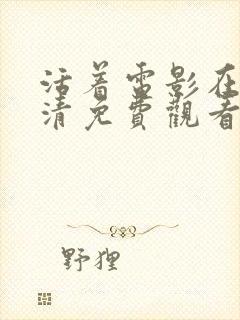 活着雷影在
清免費觀看
野狸